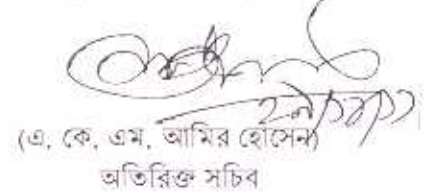 (এ, কে, এম, আমির হোসেন)
অতিরিক্ত সচিব